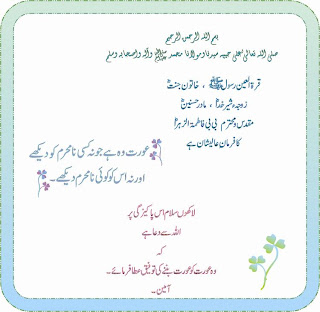 بسم اللہ الرحمن الرحیم
صلی اللہ تعالیٰ علی حبیبہ سیدنا و مولانا محمد ﷺ وآلہ واصحابہ وسلم
قرۃ العین رسول ﷺ ، خاتون جنتؓ
زوجہ شیر خداؓ ، مادر حسنینؓ
مقدس و محترم بی بی فاطمۃ الزہراؓ
کا فرمان عالیشان ہے
عورت وہ ہے جو نہ کسی نامحرم کو دیکھے
اور نہ اس کو کوئی نامحرم دیکھے۔
لاکھوں سلام اس پاکیزگی پر
اللہ سے دعا ہے
کہ
وہ عورت کو عورت بننے کی توفیق عطا فرمائے۔
آمین۔